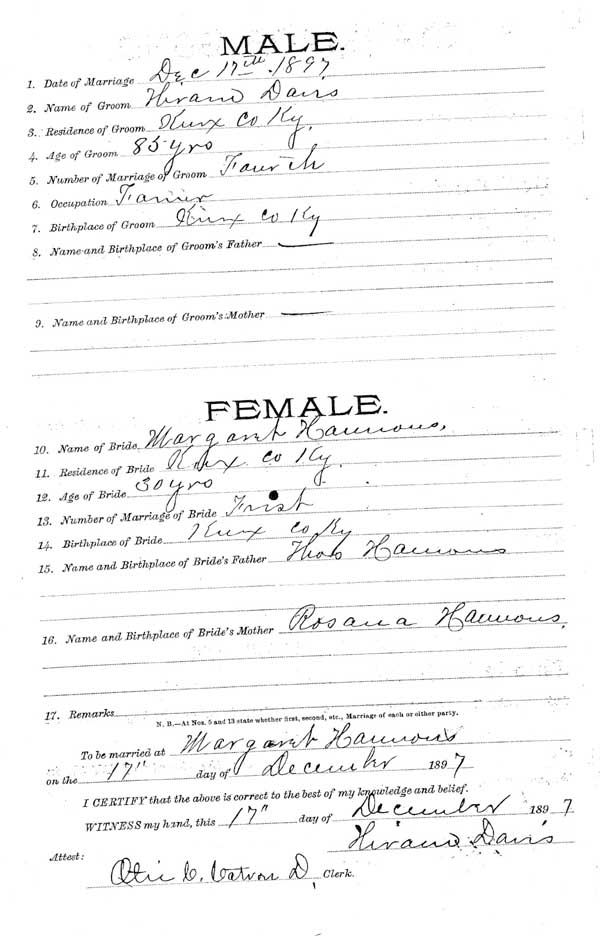 MALE.
1. Date of Marriage Dec 17th 1897
2. Name of Groom Hiram Davis
3. Residence of Groom Knox Co Ky.
4. Age of Groom 85 yrs
5. Number of Marriage of Groom Fourth
6. Occupation Farmer
7. Birthplace of Groom Knox Co Ky
8. Name and Birthplace of Groom's Father —
9. Name and Birthplace of Groom's Mother —
FEMALE.
10. Name of Bride Margaret Hammons,
11. Residence of Bride Knox Co Ky.
12. Age of Bride 30 yrs
13. Number of Marriage of Bride Frist
14. Birthplace of Bride Knox Co Ky
15. Name and Birthplace of Bride's Father Thos Hammons
16. Name and Birthplace of Bride's Mother Rosana Hammons,
17. Remarks
N. B.—At Nos. 5 and 13 state whether first, second, etc., Marriage of each or either party.
To be married at Margaret Hammons
on the 17" day of December 1897
I CERTIFY that the above is correct to the best of my knowledge and belief.
WITNESS my hand, this 17" day of December 1897
Hiram Davis
Attest:
C. Catron D, Clerk.